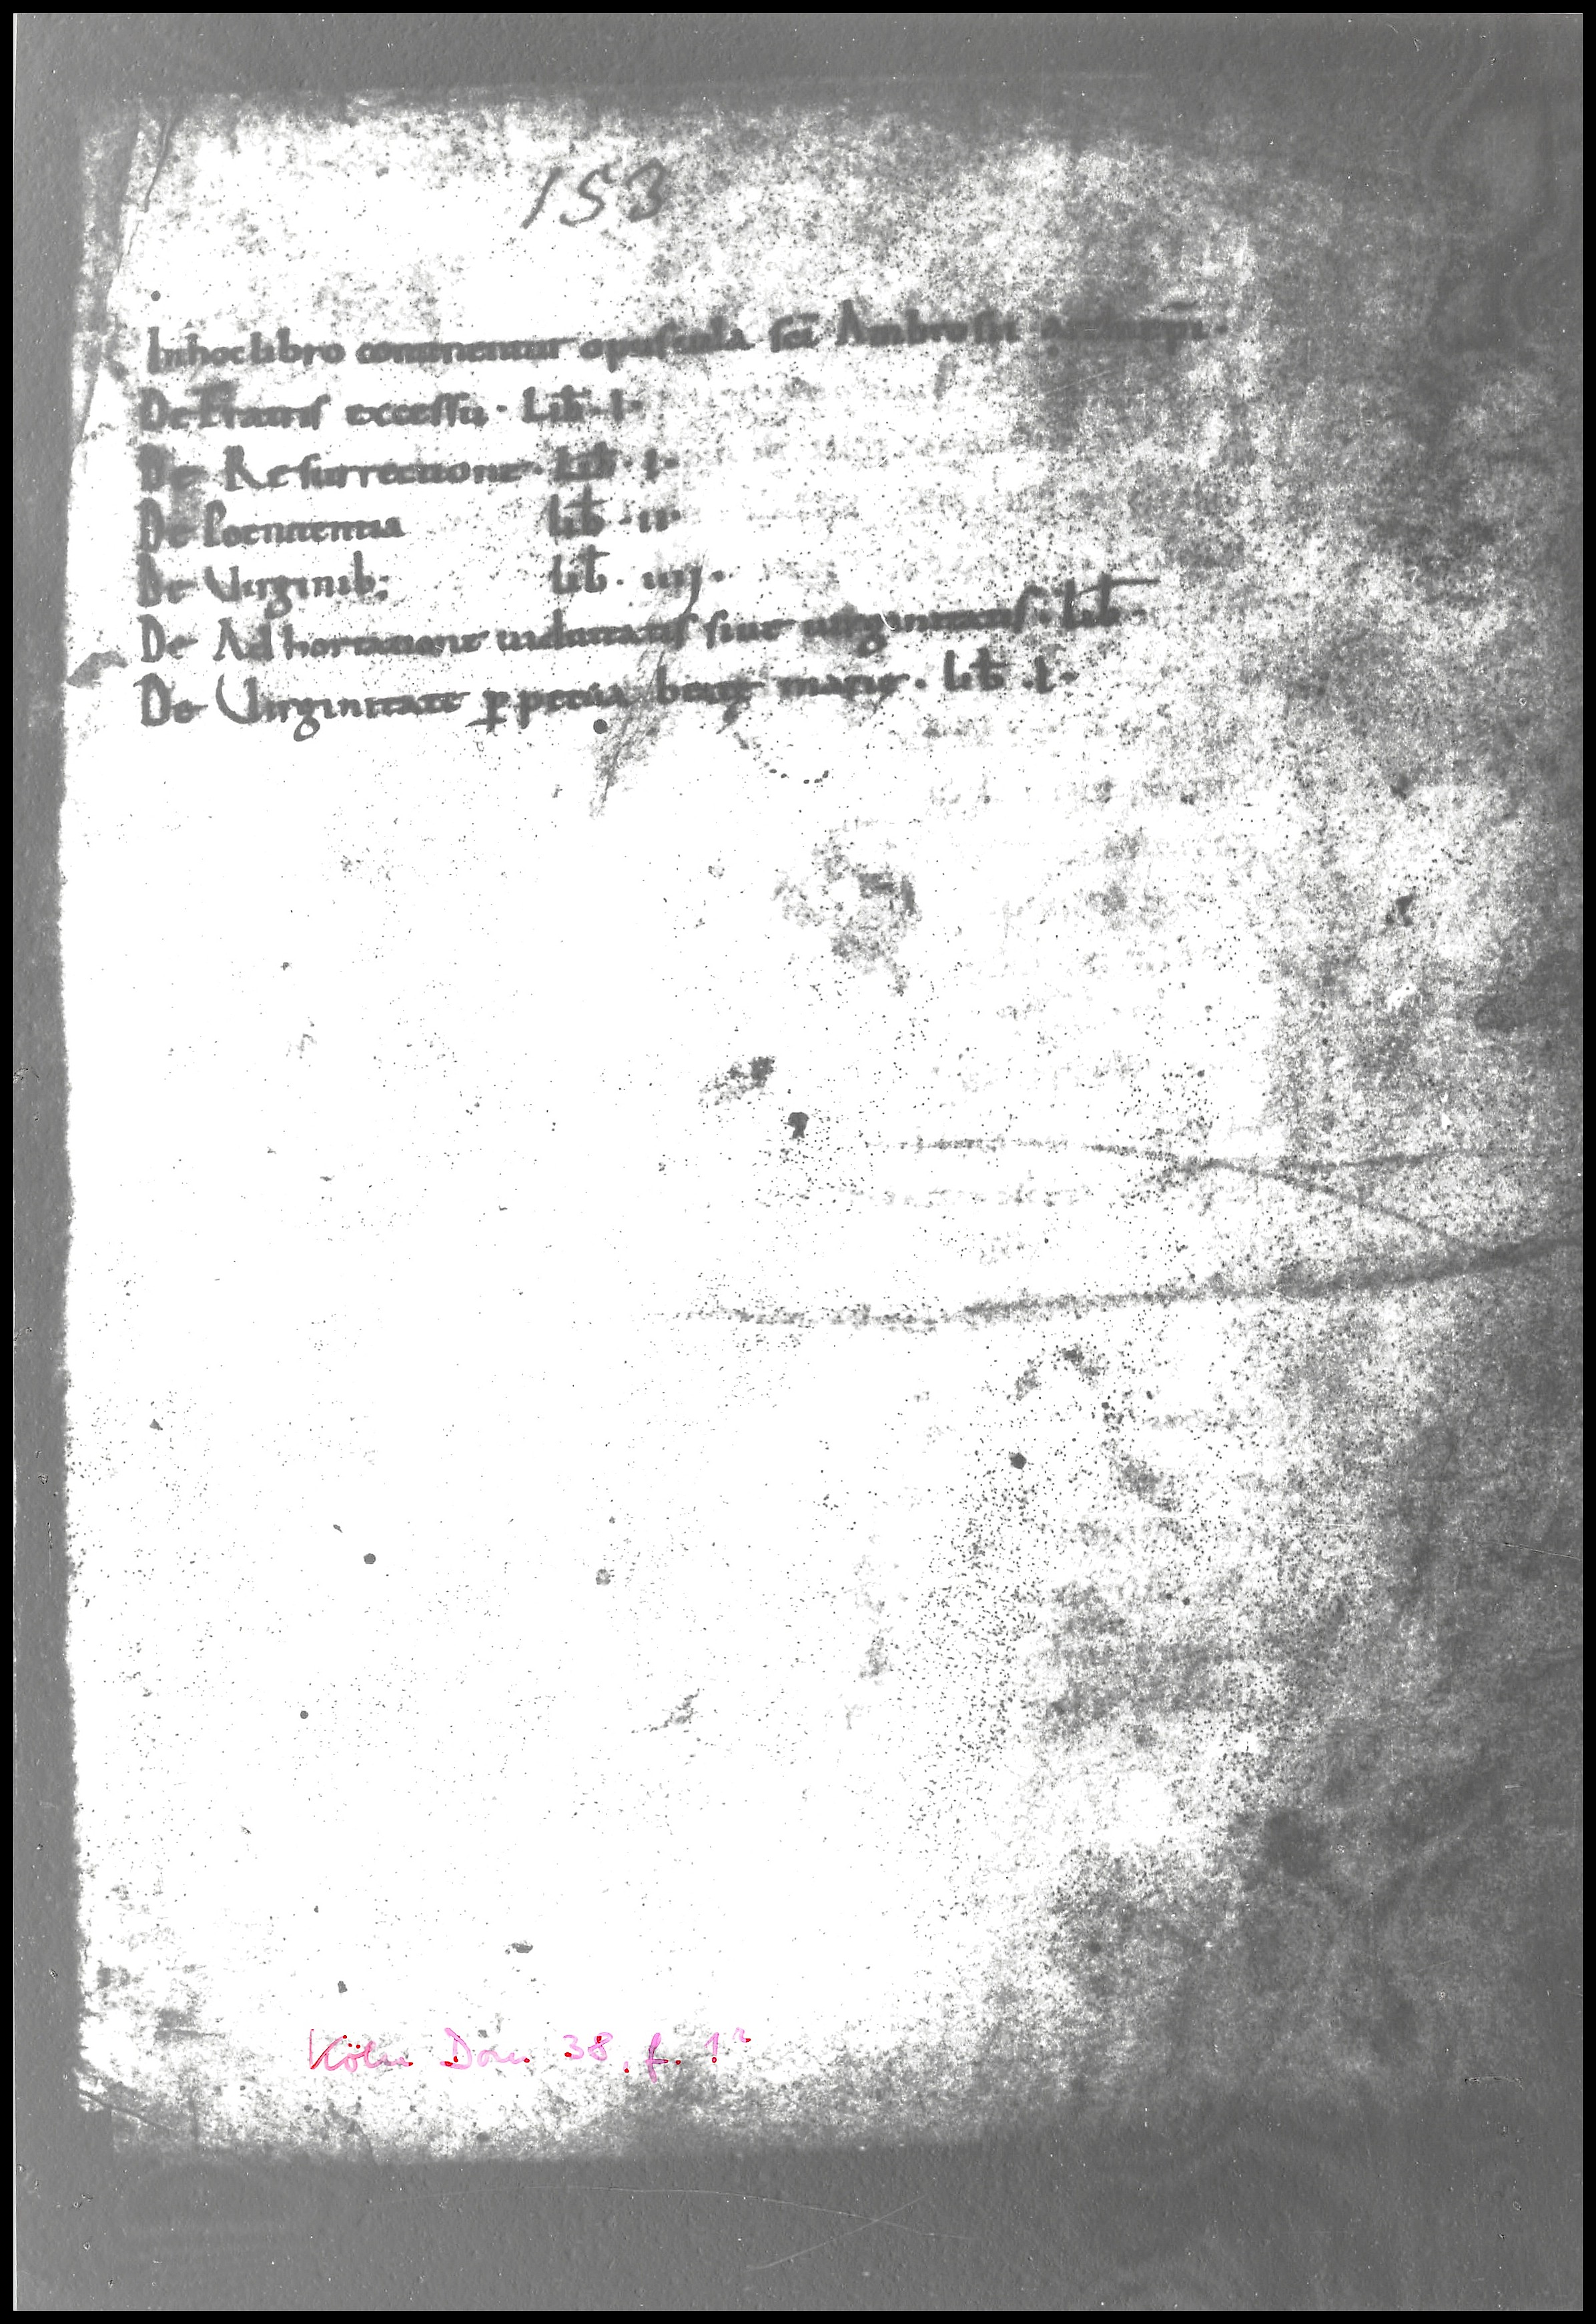 153
In hoc libro continentur opuscula sc̄i Ambrosii archiepi̅.
De Fratris excessu · Lib̄ · I ·
De Resurrectione · Lib̄ · I ·
De Poenitentia lib̄ · II ·
De Virginib; lib̄ · IIIJ ·
De Adhortatione uiduitatis siue uirginitatis · lib̄ ·
De Virginitate ꝑpetua beate marie · lib̄ · I ·
Köln Dom 38, f. 1r